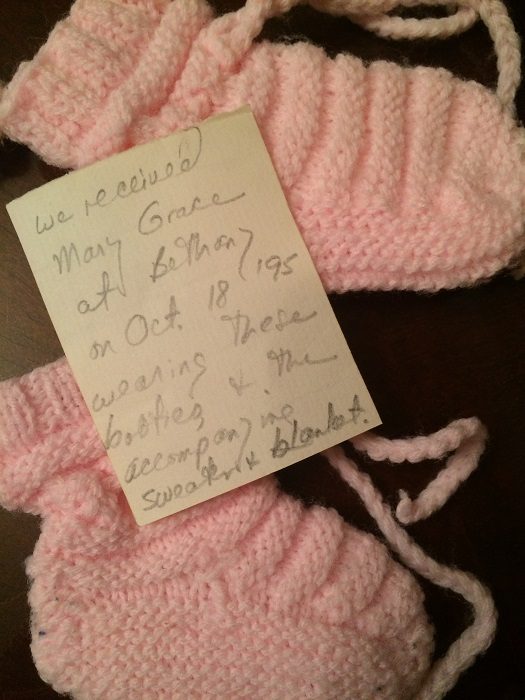 we received
Mary Grace
at Bethany
on Oct. 18, 195
wearing these
booties & the
accompanying
sweater & blanket.